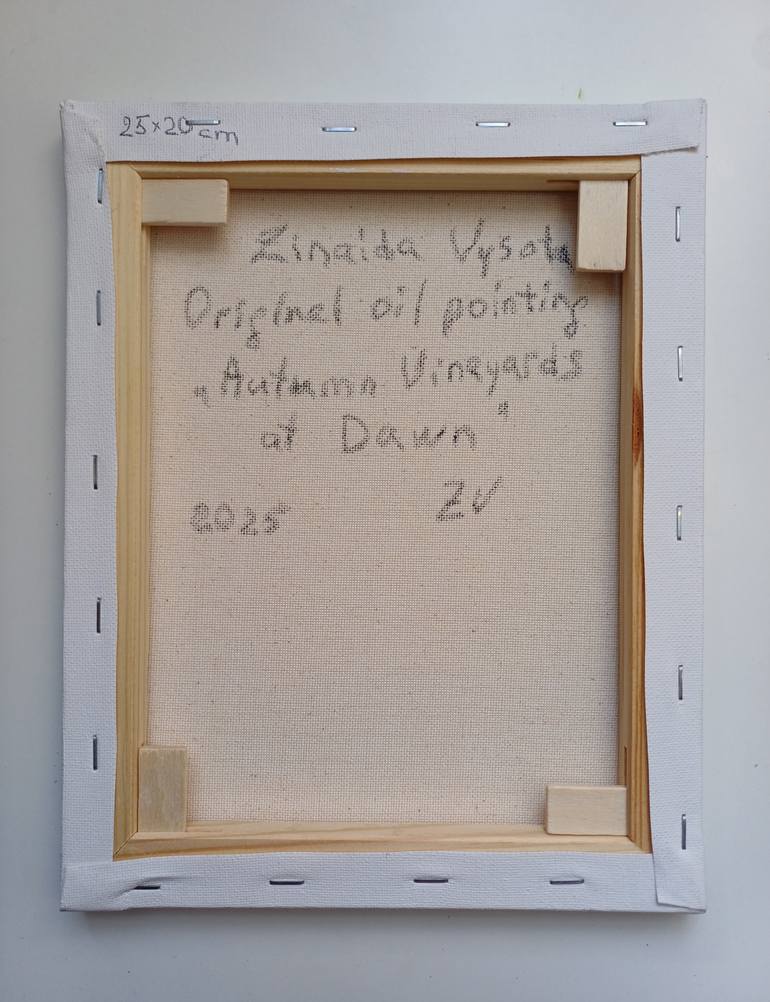 25×20 cm
Zinaida Vysota
Original oil painting
„Autumn Vineyards
at Dawn"
2025 ZV